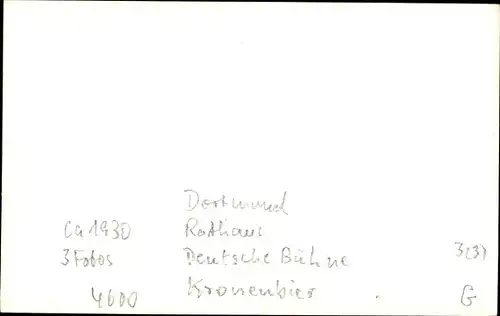 Dortmund
Ca 1930 Rathaus
3 Fotos Deutsche Bühne 3(3)
4600 Kronenbier G